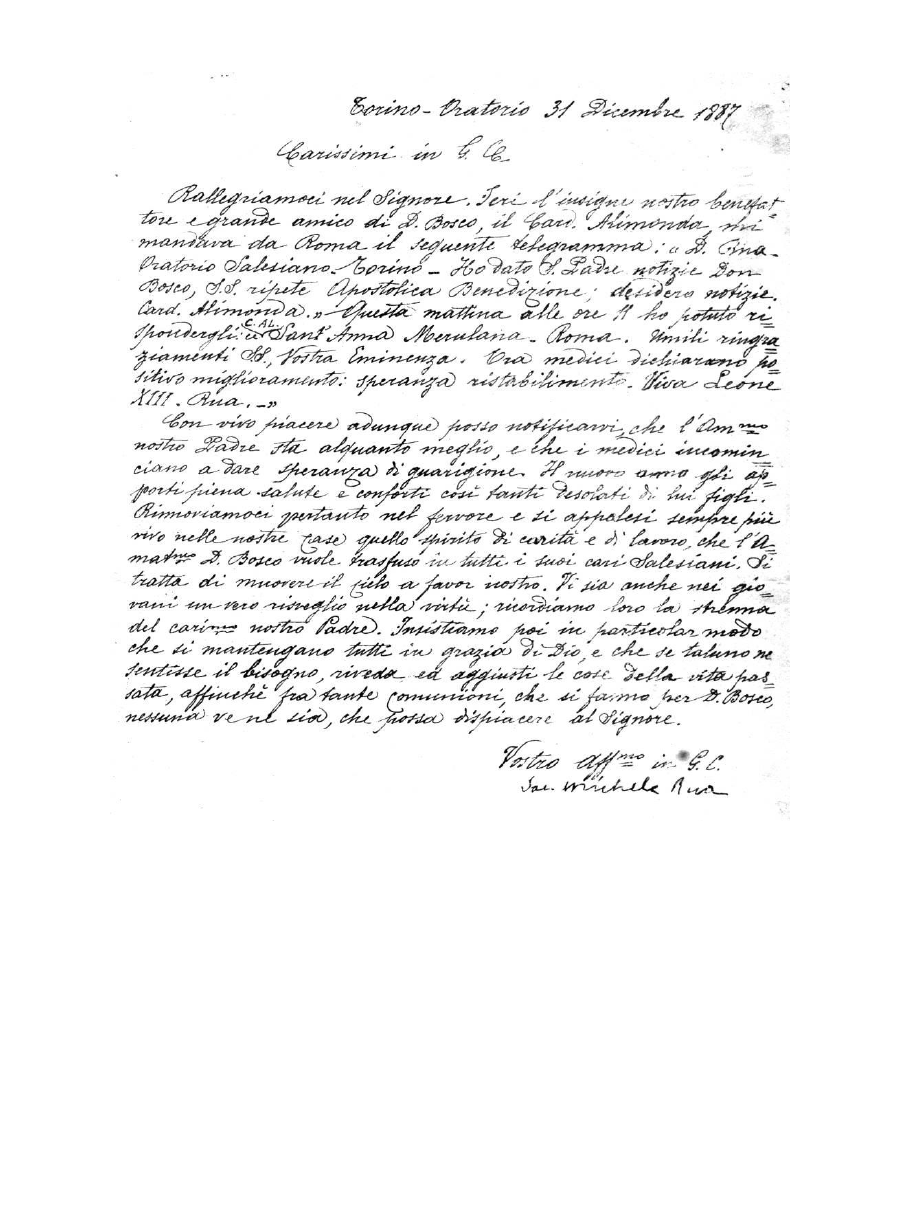 Torino - Oratorio 31 Dicembre 1887
Carissimi in G. C.
Rallegriamoci nel Signore. Ieri l'insigne nostro benefat=
tore e grande amico di D. Bosco, il Card. Alimonda, mi
mandava da Roma il seguente telegramma: „ D. Rua -
Oratorio Salesiano - Torino - Ho dato S. Padre notizie Don
Bosco, S.S. ripete Apostolica Benedizione; desidero notizie.
Card. Alimonda. „ Questa mattina alle ore 11 ho potuto ri=
spondergli: „ C. AL. Sant'Anna Merulana - Roma. Umili ringra=
ziamenti SS, Vostra Eminenza. Ora medici dichiarano po=
sitivo miglioramento: speranza ristabilimento. Viva Leone
XIII. Rua. - „
Con vivo piacere adunque posso notificarvi, che l'Ammo
nostro Padre sta alquanto meglio, e che i medici incomin=
ciano a dare speranza di guarigione. Il nuovo anno gli ap=
porti piena salute e conforti così tanti desolati di lui figli.
Rinnoviamoci pertanto nel fervore e si appalesi sempre più
vivo nelle nostre case quello spirito di carità e di lavoro, che l'A=
matmo D. Bosco vuole trasfuso in tutti i suoi cari Salesiani. Si
tratta di muovere il cielo a favor nostro. Vi sia anche nei gio=
vani un vero risveglio nella virtù; ricordiamo loro la strenna
del carimo nostro Padre. Insistiamo poi in particolar modo
che si mantengano tutti in grazia di Dio, e che se taluno ne
sentisse il bisogno, riveda ed aggiusti le cose della vita pas=
sata, affinchè fra tante comunioni, che si fanno per D. Bosco,
nessuna ve ne sia, che possa dispiacere al Signore.
Vostro affmo in G. C.
Sac. Michele Rua